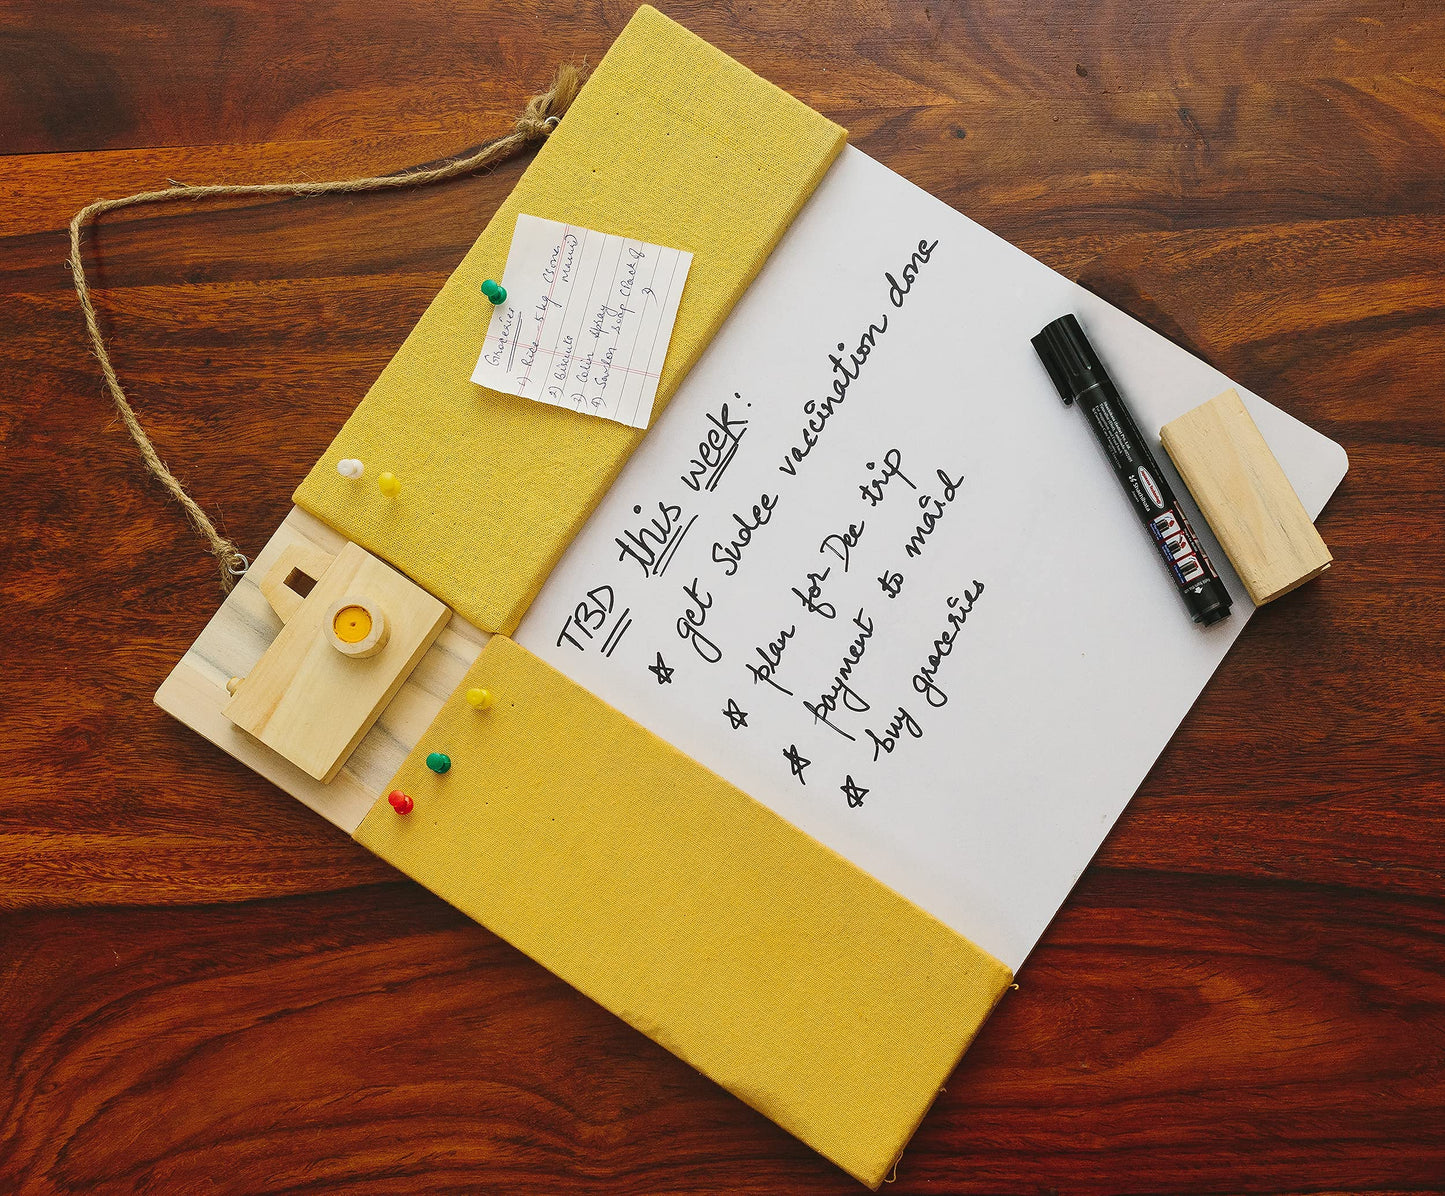 TBD this week:
☆ get Sudee vaccination done
☆ plan for Dec trip
☆ payment to maid
☆ buy groceries
Groceries
1) Rice 5 kg (Sona
2) Biscuits
3) Colin spray
4) Savlon soap (Pack of
)